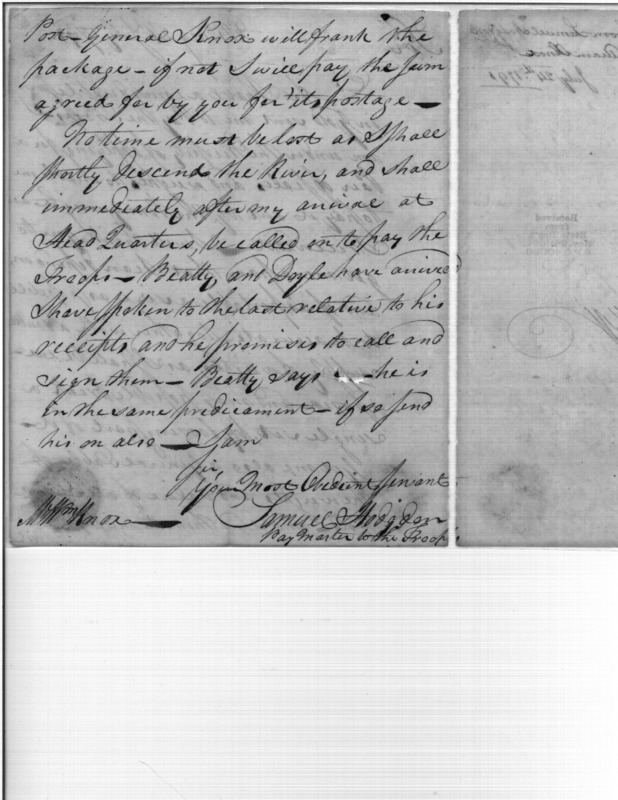 Post – General Knox will frank the
package – if not I will pay the sum
agreed for by you for its postage –
No time must be lost as I shall
shortly descend the River, and shall
immediately after my arrival at
Head Quarters, be called on to pay the
Troops – Beatty, and Doyle have arrived
I have spoken to the last relative to his
receipts and he promises to call and
sign them – Beatty says – he is
in the same predicament – if so send
his on also – I am
Sir,
Your Most Obedient Servant
Samuel Hodgdon
Pay Master to the Troops
Mr Wm Knox
Samuel
Knox
July 21st 1791